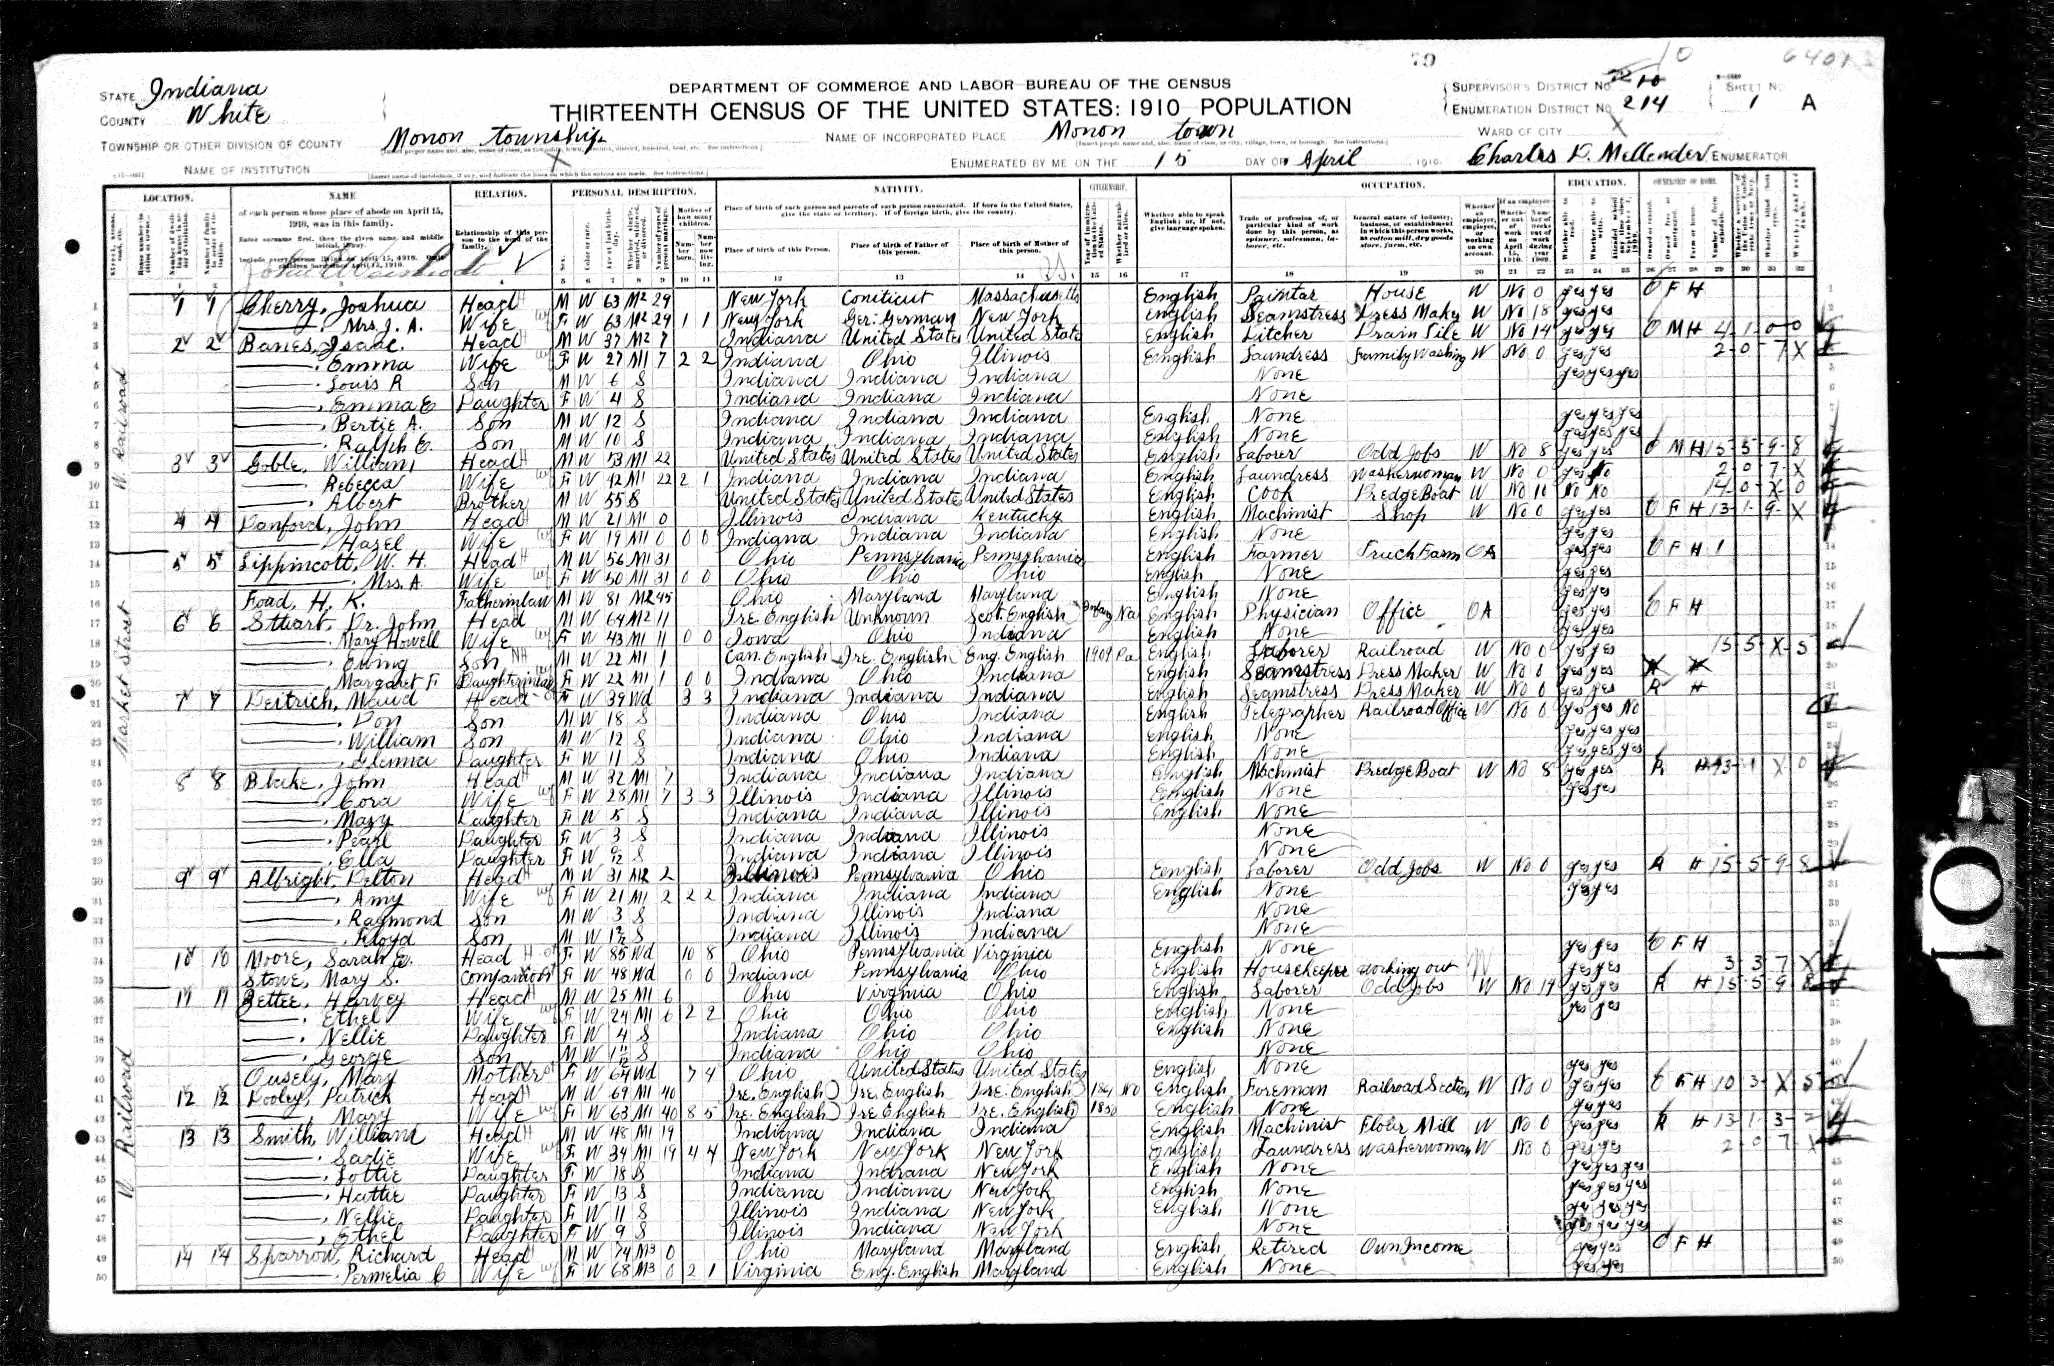 70
10
6401
STATE Indiana
COUNTY White
DEPARTMENT OF COMMERCE AND LABOR—BUREAU OF THE CENSUS
THIRTEENTH CENSUS OF THE UNITED STATES: 1910 POPULATION
SUPERVISOR'S DISTRICT NO. 10
ENUMERATION DISTRICT NO. 214
SHEET NO. 1 A
TOWNSHIP OR OTHER DIVISION OF COUNTY Monon township
NAME OF INCORPORATED PLACE Monon town
WARD OF CITY X
NAME OF INSTITUTION X
ENUMERATED BY ME ON THE 15 DAY OF April, 1910. Charles D. Mellender ENUMERATOR
LOCATION. NAME RELATION. PERSONAL DESCRIPTION. NATIVITY. CITIZENSHIP. OCCUPATION. EDUCATION. OWNERSHIP OF HOME.
of each person whose place of abode on April 15, 1910, was in this family.
Place of birth of this Person. Place of birth of Father of this person. Place of birth of Mother of this person.
1 1 Cherry, Joshua Head M W 63 M2 29 New York Coniticut Massachusetts English Painter House W No 0 yes yes O F H
Mrs. J. A. Wife F W 63 M2 29 1 1 New York Ger. German New York English Seamstress Dress Maker W No 18 yes yes
2 2 Banes, Isaac Head M W 37 M2 7 Indiana United States United States English Ditcher Drain Tile W No 14 yes yes O M H 4-1-0-0
Emma Wife F W 27 M1 7 2 2 Indiana Ohio Illinois English Laundress Family Washing W No 0 yes yes 2-0-7 X
Louis R Son M W 6 S Indiana Indiana Indiana None yes yes yes
Emma E Daughter F W 4 S Indiana Indiana Indiana None
Bertie A. Son M W 12 S Indiana Indiana Indiana English None yes yes yes
Ralph E. Son M W 10 S Indiana Indiana Indiana English None yes yes yes
3 3 Goble, William Head M W 53 M1 22 United States United States United States English Laborer Odd Jobs W No 8 yes yes O M H 15-5-9-8
Rebecca Wife F W 42 M1 22 2 1 Indiana Indiana Indiana English Laundress Washerwoman W No 0 yes No 2-0-7-X
Albert Brother M W 55 S United States United States United States English Cook Dredge Boat W No 10 No No 14-0-X-0
4 4 Danford, John Head M W 21 M1 0 Illinois Indiana Kentucky English Machinist Shop W No 0 yes yes O F H 13-1-9-X
Hazel Wife F W 19 M1 0 0 0 Indiana Indiana Indiana English None yes yes
5 5 Lippincott, W. H. Head M W 56 M1 31 Ohio Pennsylvania Pennsylvania English Farmer Truck Farm OA yes yes O F H 1
Mrs. A. Wife F W 50 M1 31 0 0 Ohio Ohio Ohio English None yes yes
Foad, H. K. Fatherinlaw M W 81 M2 45 Ohio Maryland Maryland English None yes yes
6 6 Stuart, Dr. John Head M W 64 M2 11 Ire. English Unknown Scot. English Na English Physician Office OA yes yes O F H
Mary Howell Wife F W 43 M1 11 0 0 Iowa Ohio Indiana English None yes yes
Ewing Son M W 22 M1 1 Can. English Ire. English Eng. English 1909 Pa English Laborer Railroad W No 0 yes yes 15-5-X-5
Margaret F. Daughterinlaw F W 22 M1 1 0 0 Indiana Ohio Indiana English Seamstress Dress Maker W No 0 yes yes
7 7 Deitrich, Maud Head F W 39 Wd 3 3 Indiana Indiana Indiana English Seamstress Dress Maker W No 0 yes yes R H
Don Son M W 18 S Indiana Ohio Indiana English Telegrapher Railroad Office W No 0 yes yes No
William Son M W 12 S Indiana Ohio Indiana English None yes yes yes
Glenna Daughter F W 11 S Indiana Ohio Indiana English None yes yes yes
8 8 Blake, John Head M W 32 M1 7 Indiana Indiana Indiana English Machinist Dredge Boat W No 8 yes yes R H 13-1 X 0
Cora Wife F W 28 M1 7 3 3 Illinois Indiana Illinois English None yes yes
Mary Daughter F W 5 S Indiana Indiana Illinois English None
Pearl Daughter F W 3 S Indiana Indiana Illinois None
Ella Daughter F W S Indiana Indiana Illinois None
9 9 Albright, Delton Head M W 31 M2 2 Illinois Pennsylvania Ohio English Laborer Odd Jobs W No 0 yes yes R H 15-5-9-8
Amy Wife F W 21 M1 2 2 2 Indiana Indiana Indiana English None yes yes
Raymond Son M W 3 S Indiana Illinois Indiana None
Floyd Son M W S Indiana Illinois Indiana None
10 10 Moore, Sarah E. Head F W 85 Wd 10 8 Ohio Pennsylvania Virginia English None yes yes O F H
Stowe, Mary S. Companion F W 48 Wd 0 0 Indiana Pennsylvania Ohio English Housekeeper Working out W yes yes 3-3-7 X
11 11 Bettee, Harvey Head M W 25 M1 6 Ohio Virginia Ohio English Laborer Odd Jobs W No 14 yes yes R H 15-5-9-8
Ethel Wife F W 24 M1 6 2 2 Ohio Ohio Ohio English None yes yes
Nellie Daughter F W 4 S Indiana Ohio Ohio English None
George Son M W S Indiana Ohio Ohio None
Ousely, Mary Mother F W 64 Wd 7 4 Ohio United States United States English None yes yes
12 12 Dooley, Patrick Head M W 69 M1 40 Ire. English Ire. English Ire. English 1861 English Foreman Railroad Section W No 0 yes yes O F H 10-3-X-5
Mary Wife F W 63 M1 40 8 5 Ire. English Ire English Ire. English 1850 English None yes yes
13 13 Smith, William Head M W 48 M1 19 Indiana Indiana Indiana English Machinist Flour Mill W No 0 yes yes R H 13-1-3-2
Sadie Wife F W 34 M1 19 4 4 New York New York New York English Laundress Washerwoman W No 0 yes yes 2-0-7-X
Lottie Daughter F W 18 S Indiana Indiana New York English None yes yes yes
Hattie Daughter F W 13 S Indiana Indiana New York English None yes yes yes
Nellie Daughter F W 11 S Illinois Indiana New York English None yes yes yes
Ethel Daughter F W 9 S Illinois Indiana New York None yes yes yes
14 14 Sparrow, Richard Head M W 74 M3 0 Ohio Maryland Maryland English Retired Own Income yes yes O F H
Permelia C Wife F W 68 M3 0 2 1 Virginia Eng. English Maryland English None yes yes
W. Railroad
Market Street
W Railroad
10